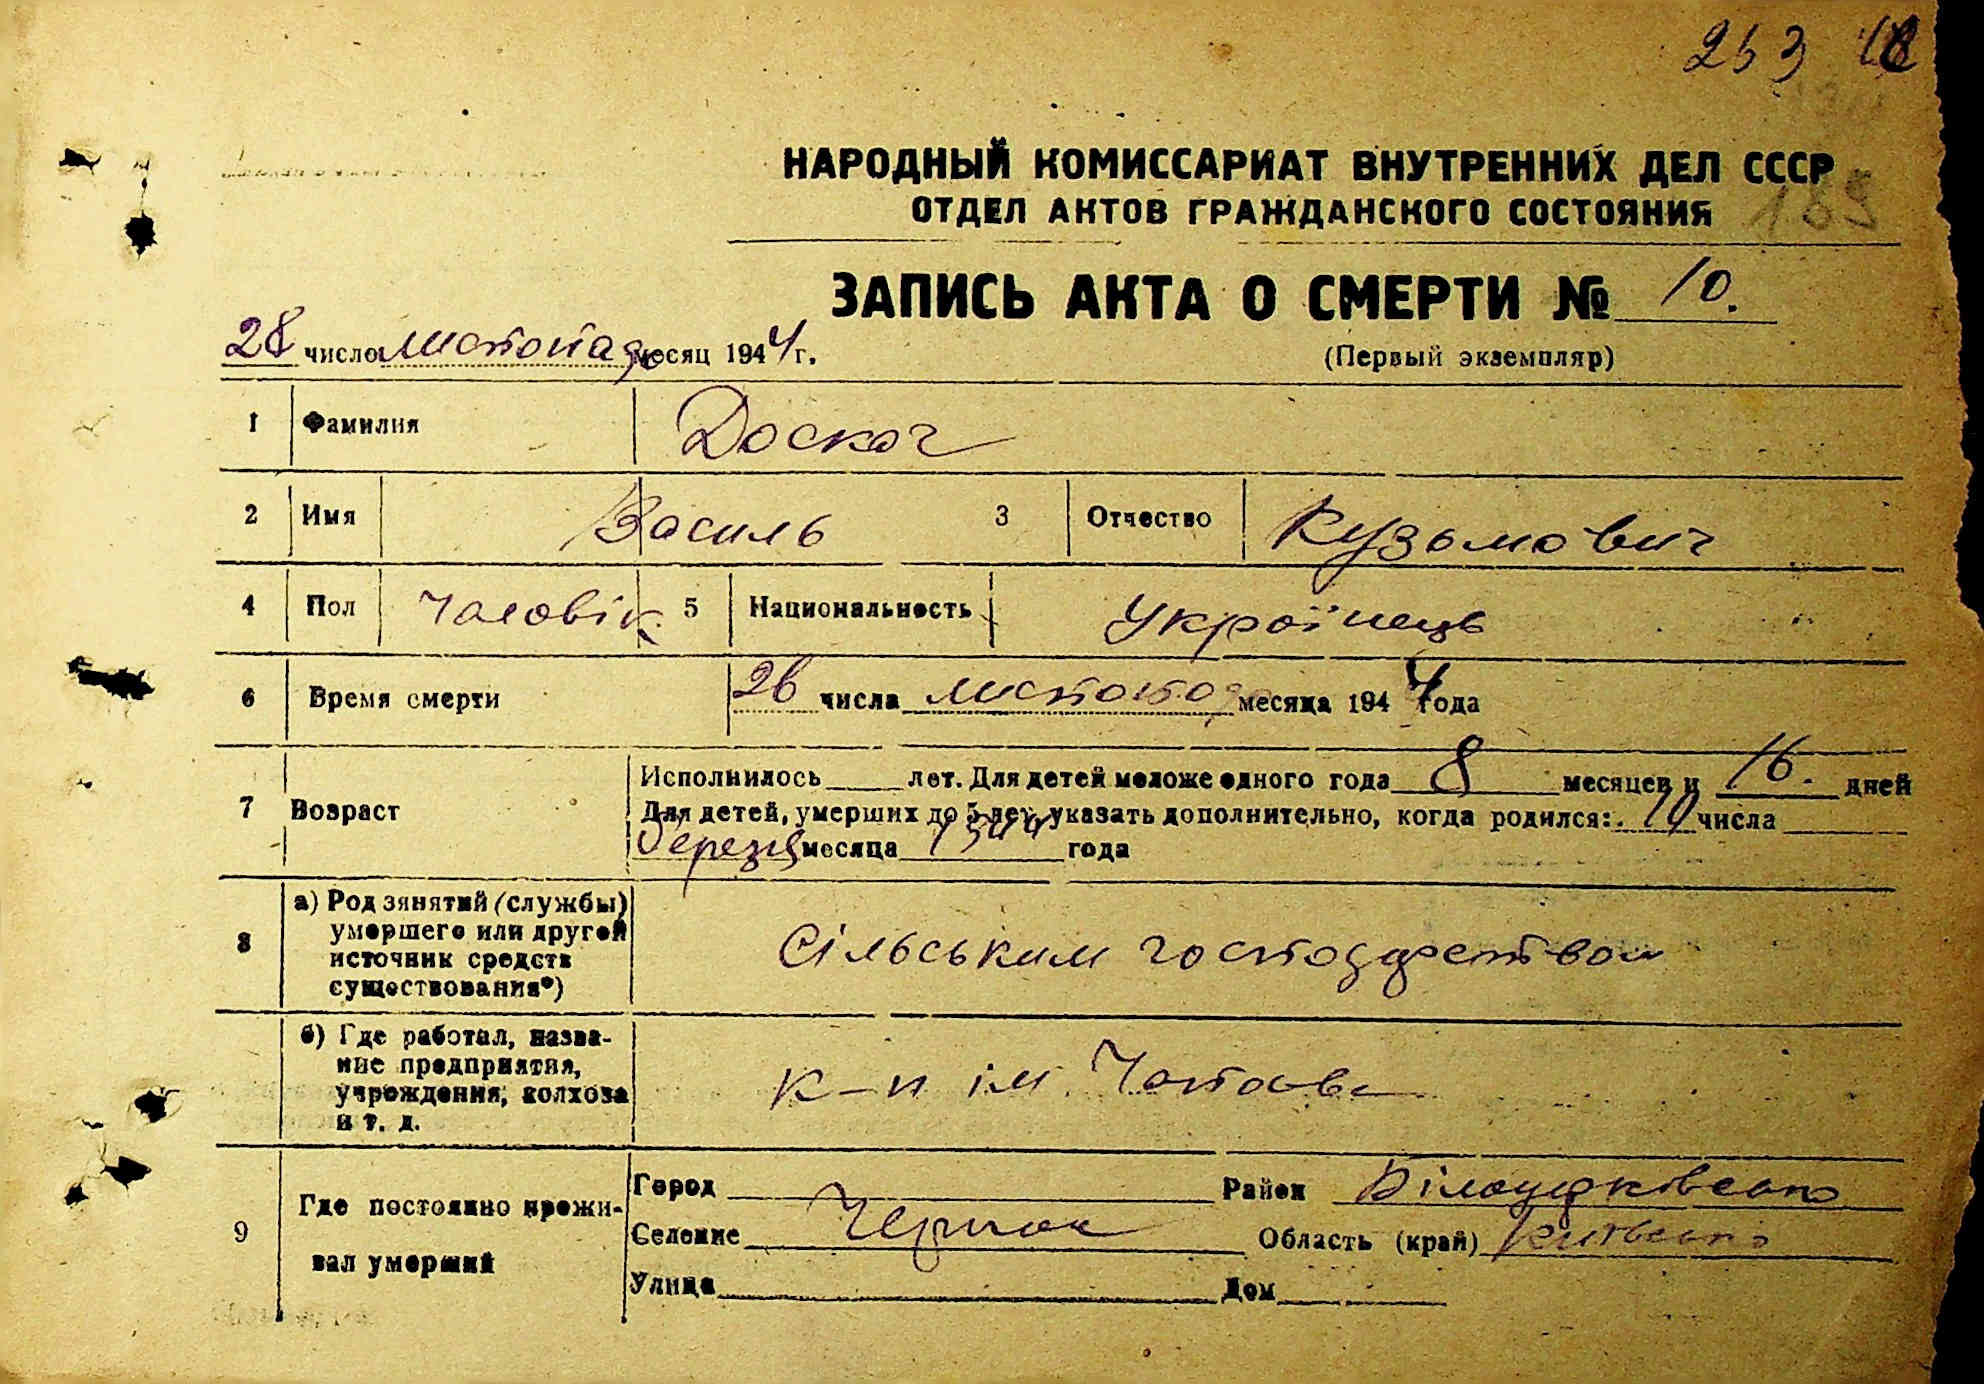 253
НАРОДНЫЙ КОМИССАРИАТ ВНУТРЕННИХ ДЕЛ СССР
ОТДЕЛ АКТОВ ГРАЖДАНСКОГО СОСТОЯНИЯ
ЗАПИСЬ АКТА О СМЕРТИ № 10.
28 число листопада месяц 1944 г.
(Первый экземпляр)
1 Фамилия Доскоч
2 Имя Василь 3 Отчество Кузьмович
4 Пол Чоловік 5 Национальность Українець
6 Время смерти 26 числа листопада месяца 1944 года
7 Возраст Исполнилось лет. Для детей моложе одного года 8 месяцев и 16. дней
Для детей, умерших до 5 лет, указать дополнительно, когда родился: 10 числа
березня месяца 1944 года
8 а) Род занятий (службы) умершего или другой источник средств существования*) Сільським господарством
б) Где работал, название предприятия, учреждения, колхоза и т. д. к-п ім. Чапаєва
9 Где постоянно проживал умерший
Город Район Білоцерківсько
Селение Область (край) Київсько
Улица Дом